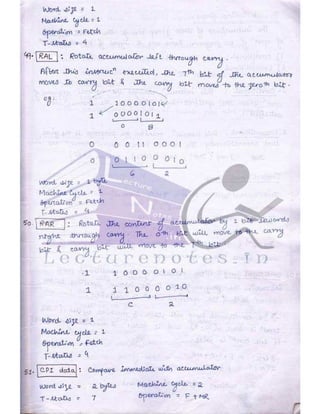 Word size = 1
Machine Cycle = 1
Operation = Fetch
T-states = 4
49. RAL : Rotate accumulator left through carry.
After this instruc<sup>n</sup> executed, the 7th bit of the accumulator
moves to carry bit & the carry bit moves to the zeroth bit.
eg:
1 1 0 0 0 0 1 0 1
1 0 0 0 0 1 0 1 1
0 B
0 0 0 1 1 0 0 0 1
0 0 1 1 0 0 0 1 0
6 2
word size = 1 byte
Machine Cycle = 1
Operation = Fetch
T-states = 4
50. RAR : Rotate the content of accumulator by 1 bit towards
right through carry. The 0th bit will move to the carry
bit & carry bit will move to the 7th bit.
Lecturenotes.in
1 1 0 0 0 0 1 0 1
1 1 1 0 0 0 0 1 0
C 2
Word size = 1
Machine cycle = 1
Operation = Fetch
T-states = 4
51. CPI data : Compare immediate with accumulator
Word size = 2 bytes Machine Cycle = 2
T-states = 7 Operation = F + MR